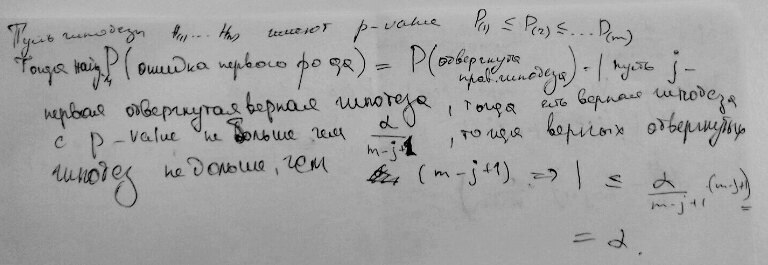 Пусть гипотезы H(1)... H(m) имеют p-value P(1) ≤ P(2) ≤ ... P(m)
Тогда P(ошибка первого рода) = P(отвергнута прав. гипотеза) = | пусть j -
первая отвергнутая верная гипотеза, тогда есть верная гипотеза
с p-value не больше чем α/(m-j+1), тогда верных отвергнутых
гипотез не больше, чем (m-j+1) => | ≤ α/(m-j+1) (m-j+1) =
= α.